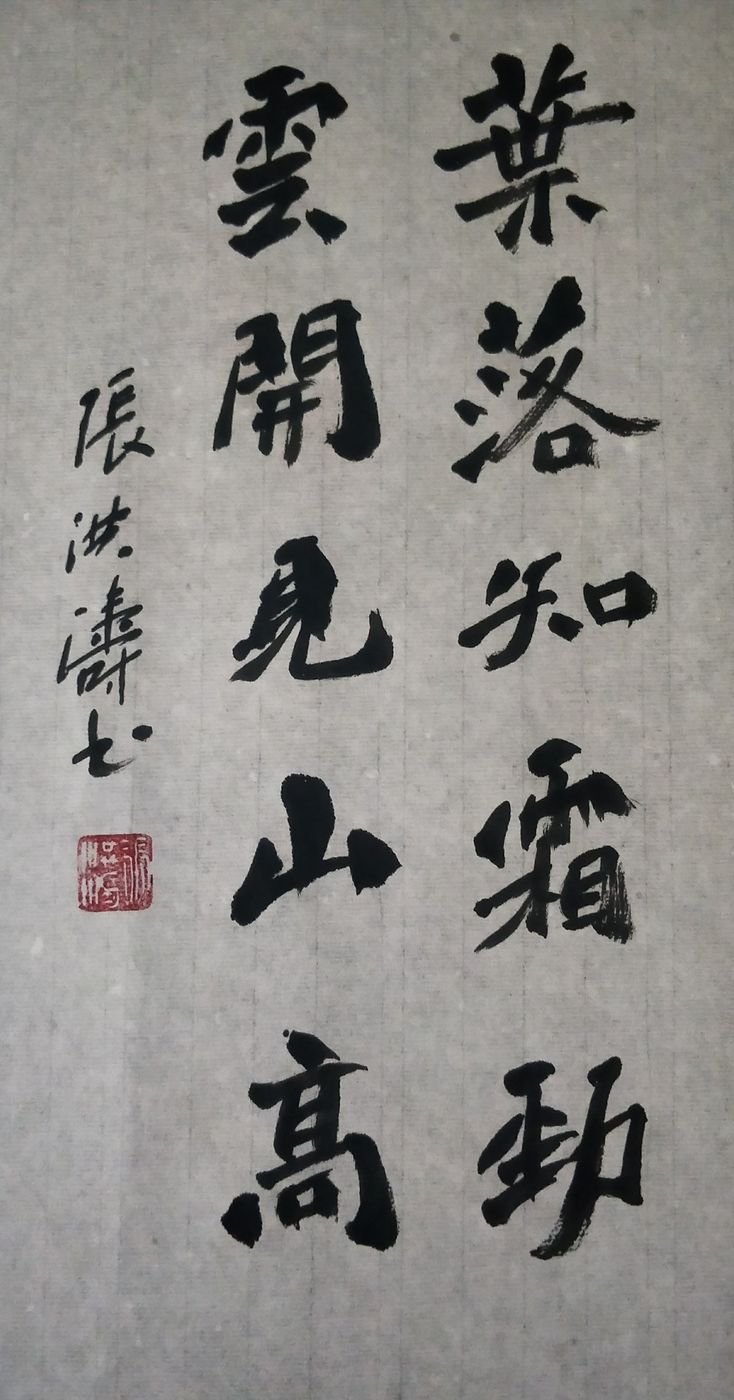 葉落知霜勁
雲開見山高
張洪濤书